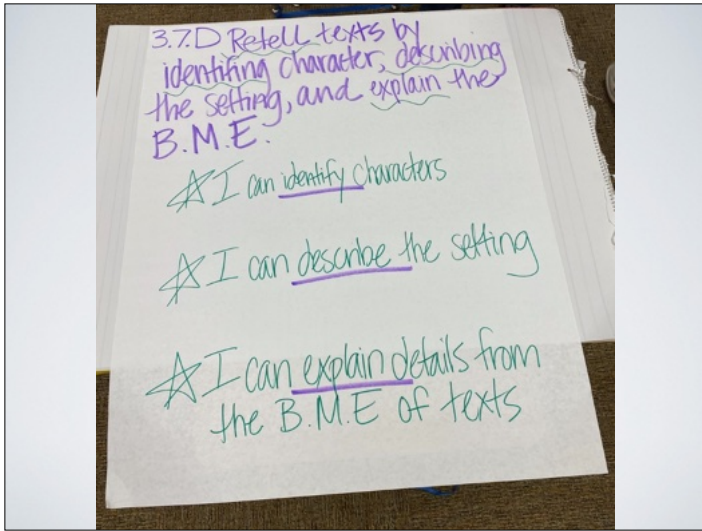 3.7.D Retell texts by
identifing character, describing
the setting, and explain the
B.M.E.
☆ I can identify characters
☆ I can describe the setting
☆ I can explain details from
the B.M.E of texts